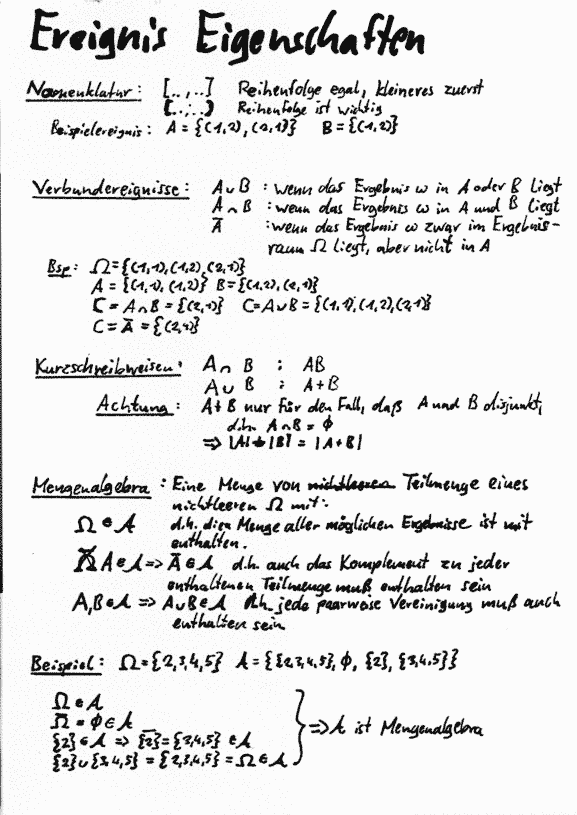 Ereignis Eigenschaften
Nomenklatur: [..,..] Reihenfolge egal, kleineres zuerst
(..,..) Reihenfolge ist wichtig
Beispielereignis: A = {(1,2),(2,1)} B = {(1,2)}
Verbundereignisse: A∪B : wenn das Ergebnis ω in A oder B liegt
A∩B : wenn das Ergebnis ω in A und B liegt
Ā : wenn das Ergebnis ω zwar im Ergebnis-
raum Ω liegt, aber nicht in A
Bsp: Ω = {(1,1),(1,2),(2,1)}
A = {(1,1),(1,2)} B = {(1,2),(2,1)}
C = A∩B = {(2,1)} C = A∪B = {(1,1),(1,2),(2,1)}
C = Ā = {(2,1)}
Kurzschreibweisen: A∩B : AB
A∪B : A+B
Achtung: A+B nur für den Fall, daß A und B disjunkt,
d.h. A∩B = ϕ
⇒ |A|+|B| = |A+B|
Mengenalgebra : Eine Menge von nichtleeren Teilmenge eines
nichtleeren Ω mit:
Ω ∈ A d.h. dien Menge aller möglichen Ergebnisse ist mit
enthalten.
A ∈ A ⇒ Ā ∈ A d.h. auch das Komplement zu jeder
enthaltenen Teilmenge muß enthalten sein
A,B ∈ A ⇒ A∪B ∈ A d.h. jede paarweise Vereinigung muß auch
enthalten sein
Beispiel: Ω = {2,3,4,5} A = {{2,3,4,5}, ϕ, {2}, {3,4,5}}
Ω ∈ A
Ω̄ = ϕ ∈ A
{2} ∈ A ⇒ {2}̄ = {3,4,5} ∈ A ⇒ A ist Mengenalgebra
{2}∪{3,4,5} = {2,3,4,5} = Ω ∈ A